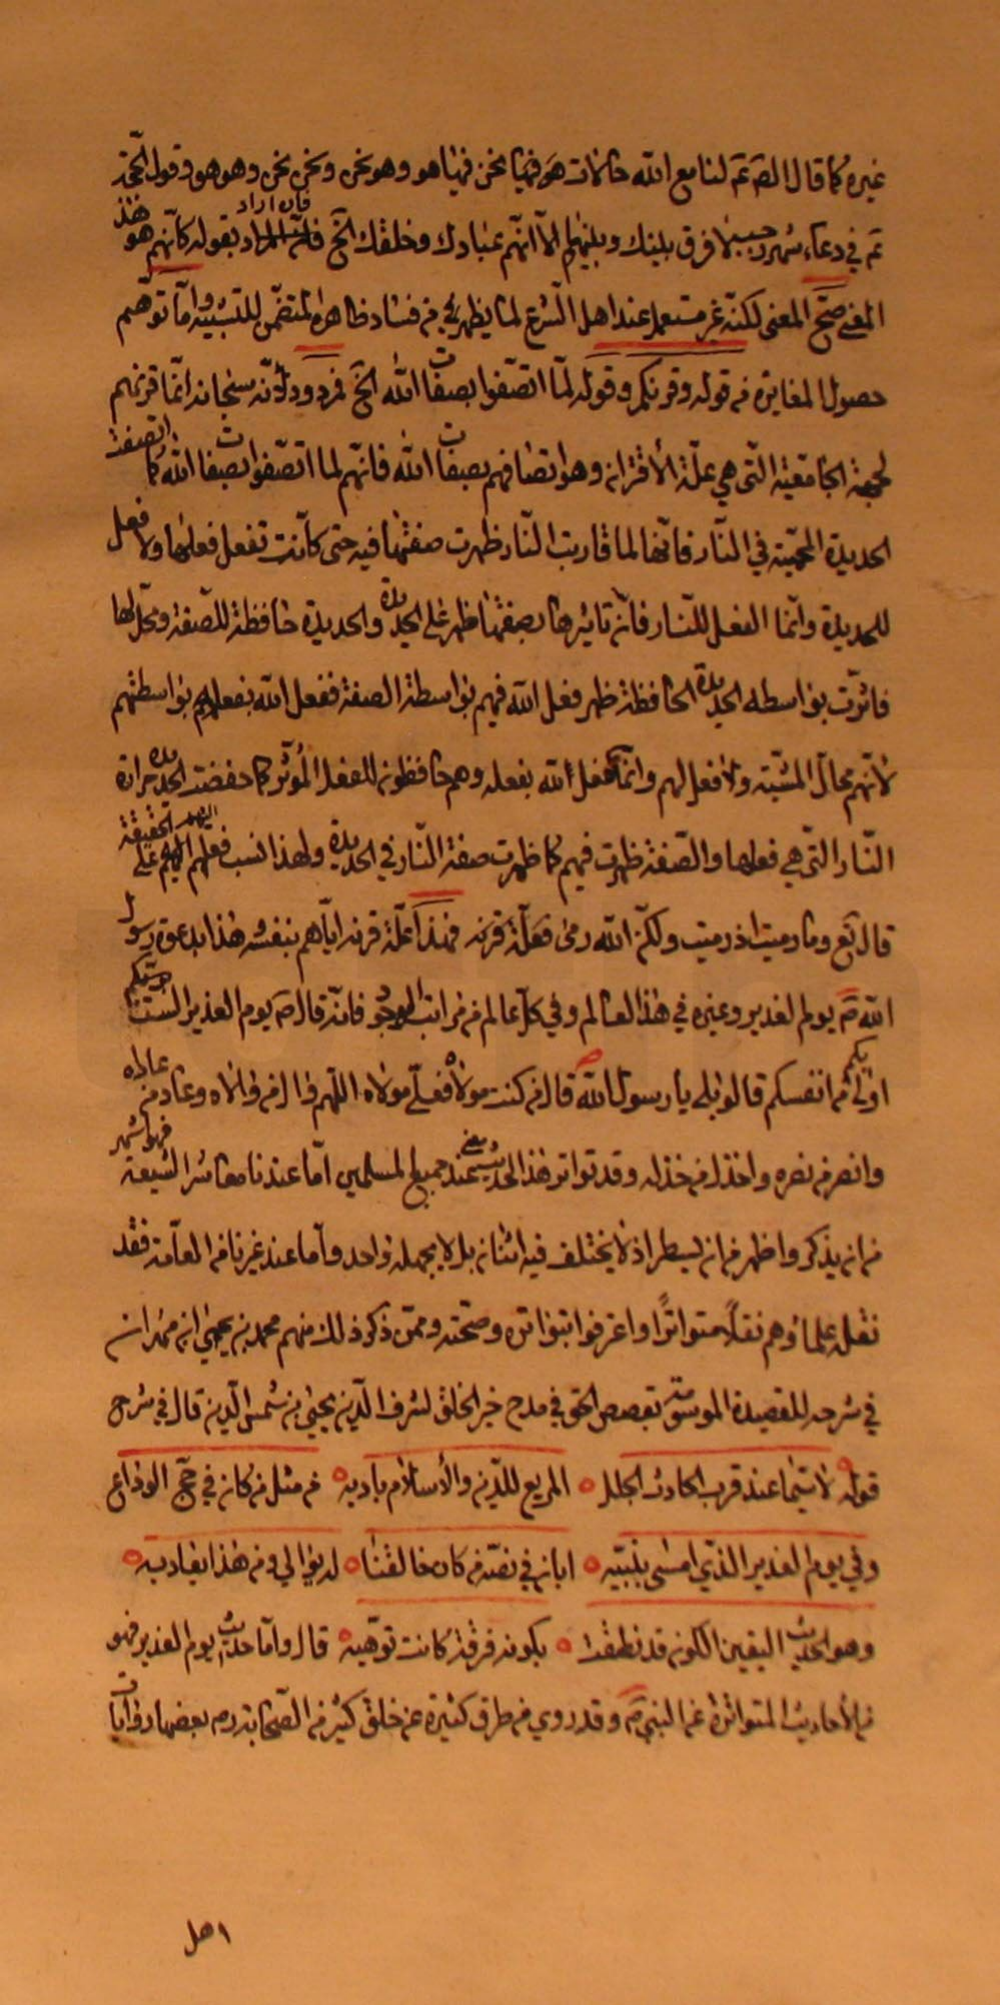 غيره كما قال الصم عم لنا مع الله حالات هو فيها نحن فيها هو وهو نحن ونحن نحن وهو هو وقول الحجة
عم في دعاء شهر رجب لا فرق بينك وبينها الا انهم عبادك وخلقك الخ فان اراد بقوله كأنهم هو هذا
المعنى صح المعنى لكنه غير مستعمل عند اهل الشرع لما يظهر في من فساد ظاهره المتضمن للتشبيه واما توهم
حصول المغايرة من قوله وقرنكم وقوله لما اتصفوا بصفات الله الخ فمردود لأنه سبحانه انما قرنهم
لجهة الجامعية التي هي علة الأقتران وهو اتصافهم بصفات الله فانهم لما اتصفوا بصفات الله كما اتصفت
الحديدة المحمية في النار فانها لما قاربت النار ظهرت صفتها فيه حتى كانت تفعل فعلها ولا فعل
للحديدة وانما الفعل للنار فان تاثيرها بصفتها ظهر على الحديدة والحديدة حافظة للصفة ومحل لها
فاثرت بواسطه الحديدة الحافظة ظهر فعل الله فيهم بواسطة الصفة ففعل الله بفعله بهم بواسطتهم
لأنهم محال المشية ولا فعل لهم وانما فعل الله بفعله وهم حافظون للفعل المؤثر كما حفضت الحديدة حرارة
النار التي هي فعلها والصفة ظهرت فيهم كما ظهرت صفة النار في الحديدة ولهذا نسب فعلهم اليهم على الحقيقة
قال تع وما رميت اذ رميت ولكن الله رمى فعلة قرن فهذا علة قرن اياهم بنفسه هذا بدعوة رسول
الله ص يوم الغدير وغيره في هذا العالم وفي كل عالم من مراتب الوجود فانه قال ص يوم الغدير الست بنبيكم
اولى بكم من انفسكم قالوا بلى يا رسول الله قال من كنت مولاه فعلي مولاه اللهم وال من والاه وعاد من عاداه
وانصر من نصره واخذل من خذله وقد تواتر هذا الحديث عند جميع المسلمين اما عندنا معاشر الشيعة فهو اشهر
من ان يذكر واظهر من ان يسطر اذ لا يختلف فيه اثنان بل لا يجهله واحد واما عند غيرنا من العامة فقد
نقله علماؤهم نقلاً متواترًا واعرفوا بتواتره وصحته وممن ذكر ذلك منهم محمد بن يحيى ابن مهران
في شرحه للقصيدة الموسومة بقصص الحق في مدح خير الخلق لشرف الدين يحيى بن شمس الدين قال في شرح
قوله لا سيما عند قرب الحادث الجلل المريع للدين والأسلام باديه من مثل من كان في حج الوداع
وفي يوم الغدير الذي امسى يثنيه ابان في نصه من كان خالقنا له يوالي ومن هذا يعاديه
وهو الحديث اليقين الكون قد نطقت بكونه فرقة كانت توهيه قال واما حديث يوم الغدير فهو
من الأحاديث المتواترة عن النبي ص وقد روي من طرق كثيرة عن خلق كثير من الصحابة دم بعضها روايات
اهل